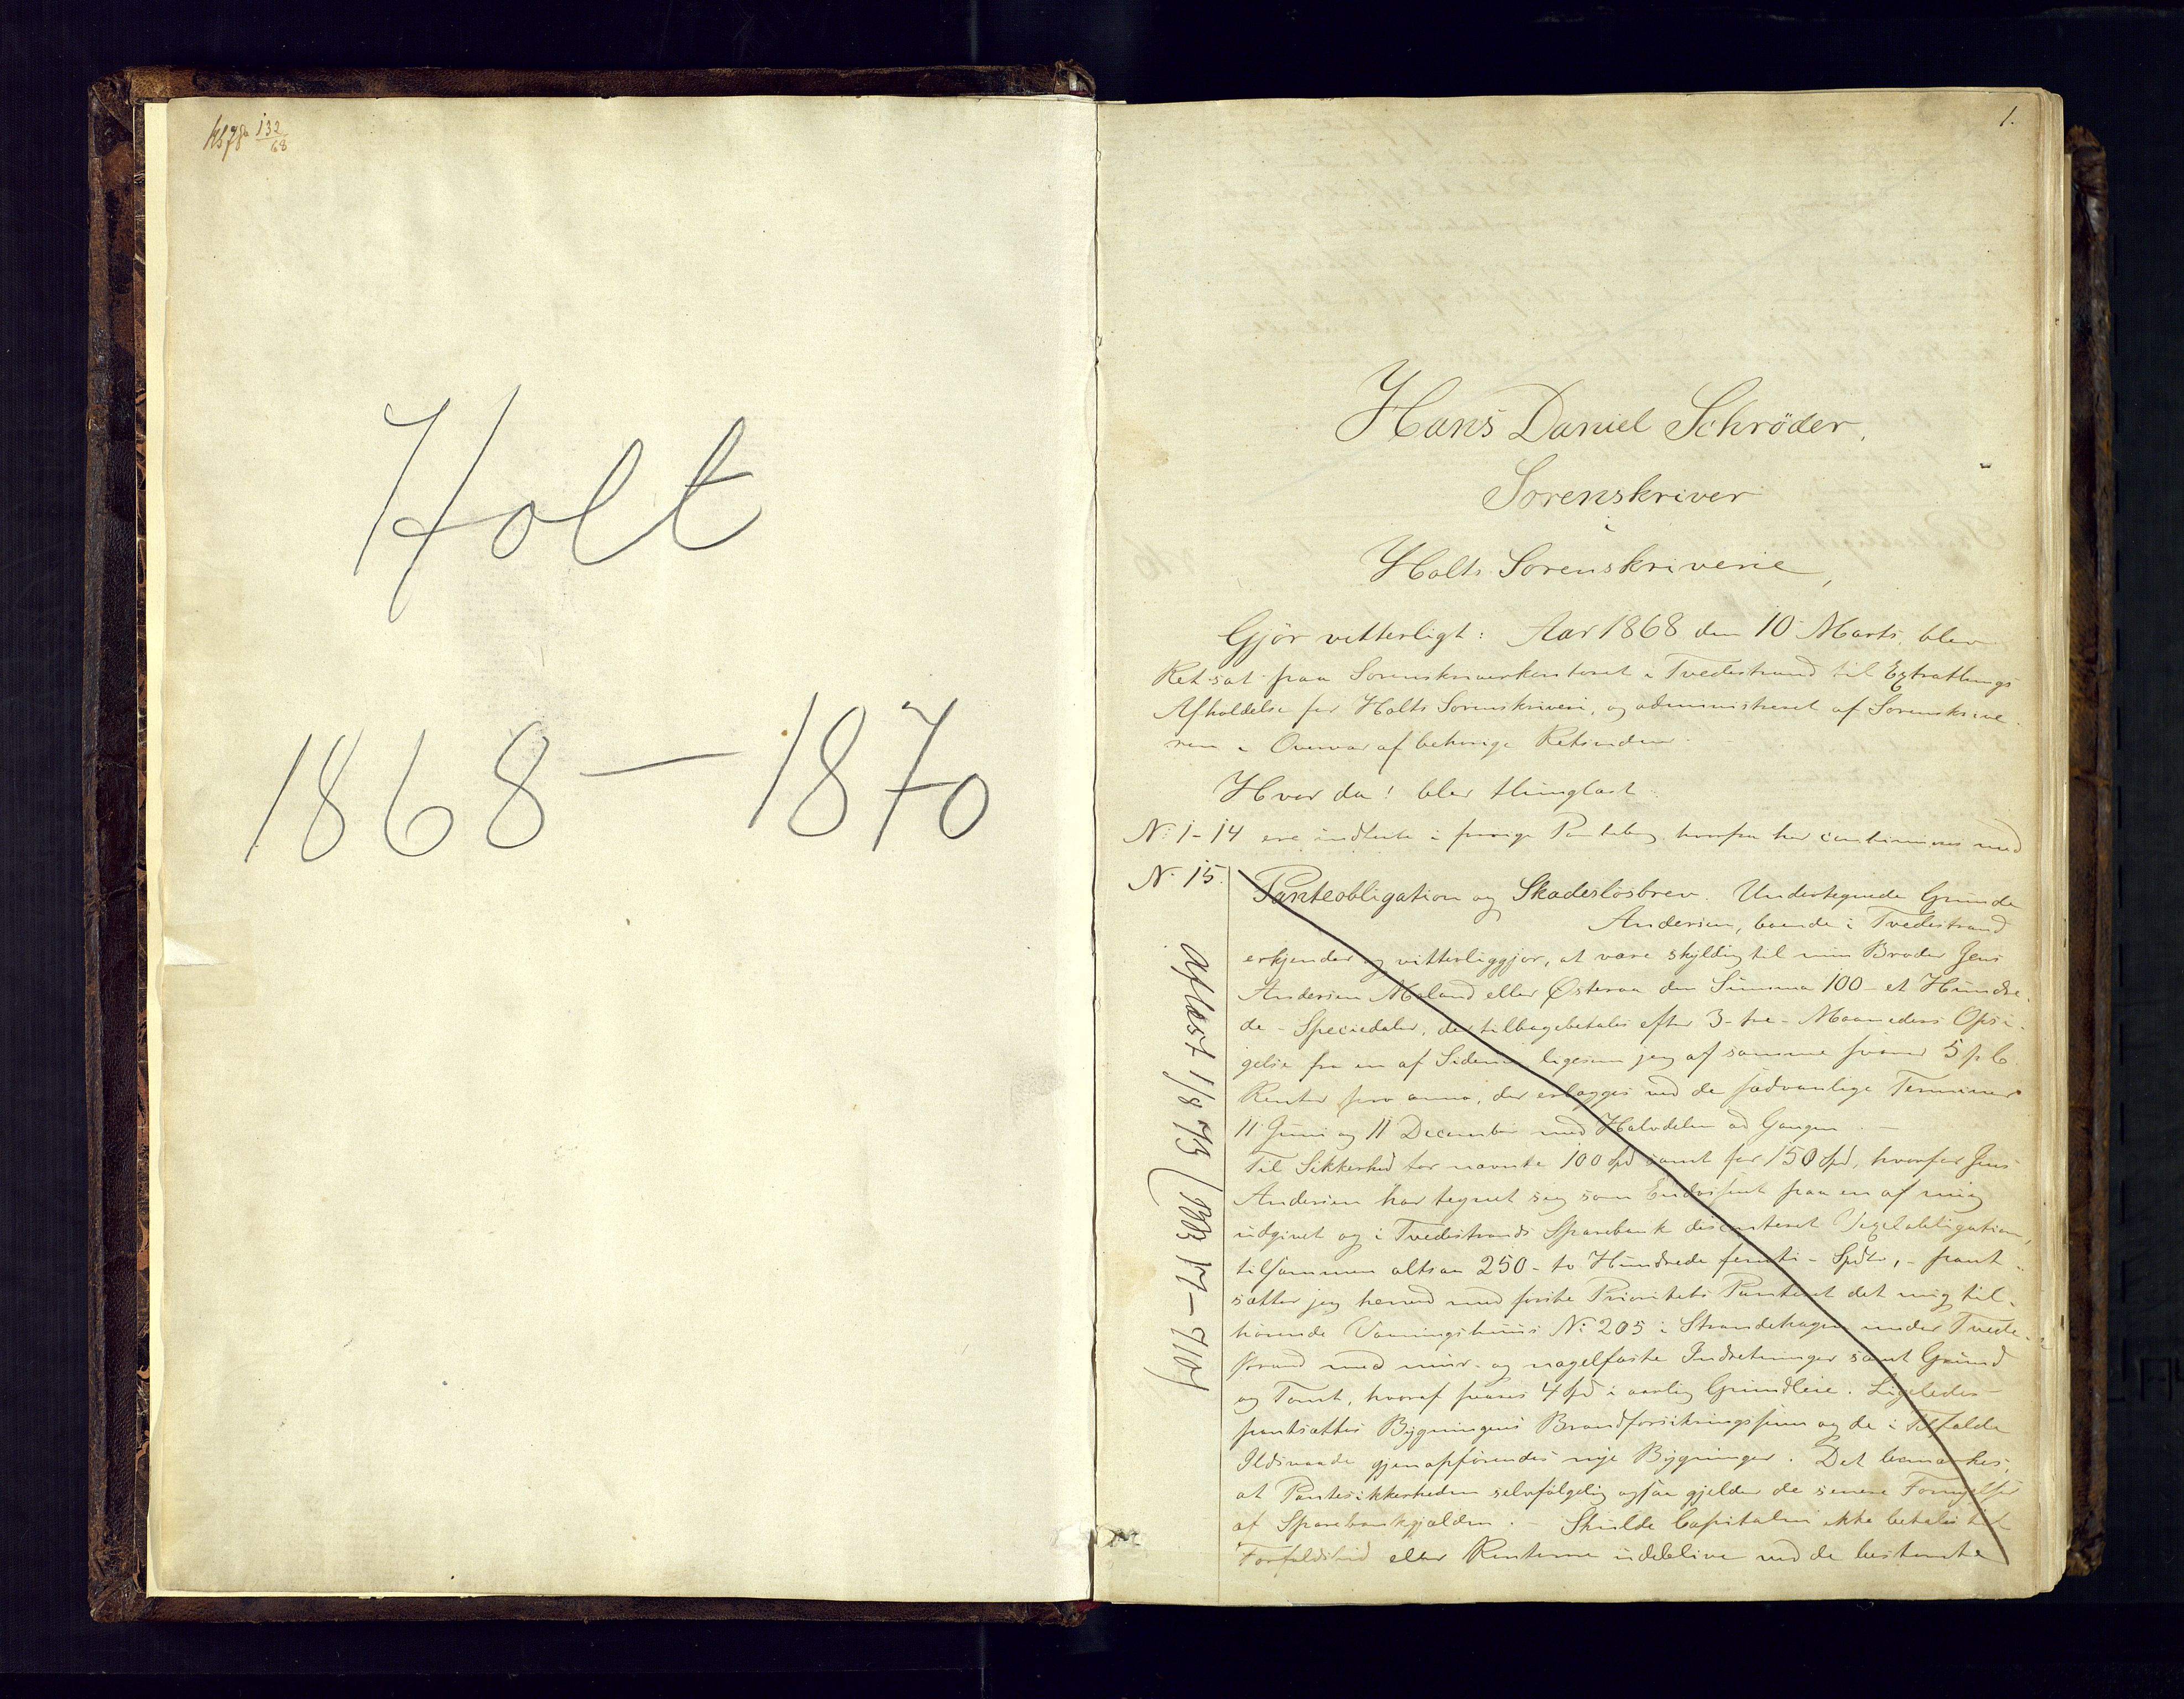 132
68
Holt
1868 — 1870
1.
Hans Daniel Schrøder,
Sorenskriver
i
Holts Sorenskriverie,
Gjör vitterligt: Aar 1868 den 10 Marts, blev
Ret sat paa Sorenskriverkontoret i Tvedestrand til Extrathings
Afholdelse for Holts Sorenskriveri, og administreret af Sorenskrive-
ren i Overvær af behørige Retsvidner.
Hvor da! blev thinglæst:
N: 1-14 ere indførte i forrige Pantebog, hvorfra her continueres med
N. 15. Panteobligation og Skadesløsbrev. Undertegnede Gunde
Andersen, boende i Tvedestrand
erkjender og vitterliggjør, at være skyldig til min Broder Jens
Andersen Moland eller Østeraa den Summa 100 - et Hundre-
de - Speciedaler, der tilbagebetales efter 3 - tre - Maaneders Opsi-
gelse fra en af Siderne ligesom jeg af samme svarer 5 p. C.
Renter pro anno, der erlægges ved de sædvanlige Terminer
11 Juni og 11 December med Halvdelen ad Gangen. -
Til Sikkerhed for nævnte 100 Spd samt for 150 Spd, hvorfor Jens
Andersen har tegnet sig som Endossent paa en af mig
udgivet og i Tvedestrands Sparebank disconteret Vexelobligation,
tilsammen altsaa 250 - to Hundrede femti - Spdlr, - pant-
sætter jeg herved med første Prioritets Panteret det mig til-
hørende Vaaningshuus N: 205 i Strandehagen under Tvede-
strand med muur- og nagelfaste Indretninger samt Grund
og Tomt, hvoraf svares 4 Spd i aarlig Grundleie. Ligeledes
pantsættes Bygningens Brandforsikringssum og de i Tilfælde
Ildsvaade gjenopførendes nye Bygninger. Det bemærkes,
at Pantesikkerheden selvfølgelig ogsaa gjelder de senere Fornyelser
af Sparebankgjælden. - Skulde Capitalen ikke betales til
Forfaldstid eller Renterne udeblive ved de bestemte
Aflæst 1/8 73